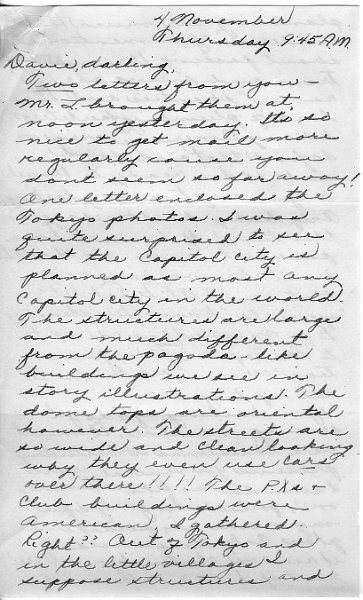 4 November
Thursday 9:45 A.M.
Davie, darling,
Two letters from you –
Mr. L. brought them at
noon yesterday. It's so
nice to get mail more
regularly cause you
don't seem so far away!
One letter enclosed the
Tokyo photos. I was
quite surprised to see
that the Capitol city is
planned as most any
Capitol city in the world.
The structures are large
and much different
from the pagoda-like
buildings we see in
story illustrations. The
dome tops are oriental
however. The streets are
so wide and clean looking
why they even use cars
over there!!!! The P.X.s +
Club buildings were
American, I gathered.
Right?? Out of Tokyo and
in the little villages I
suppose structures and